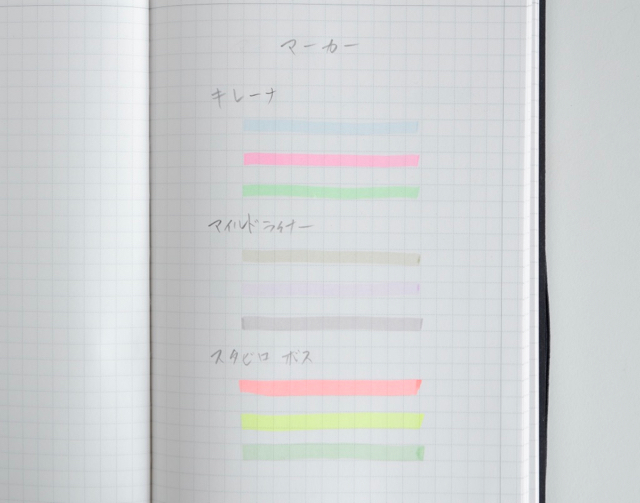 マーカー
キレーナ
マイルドライナー
スタビロ ボス